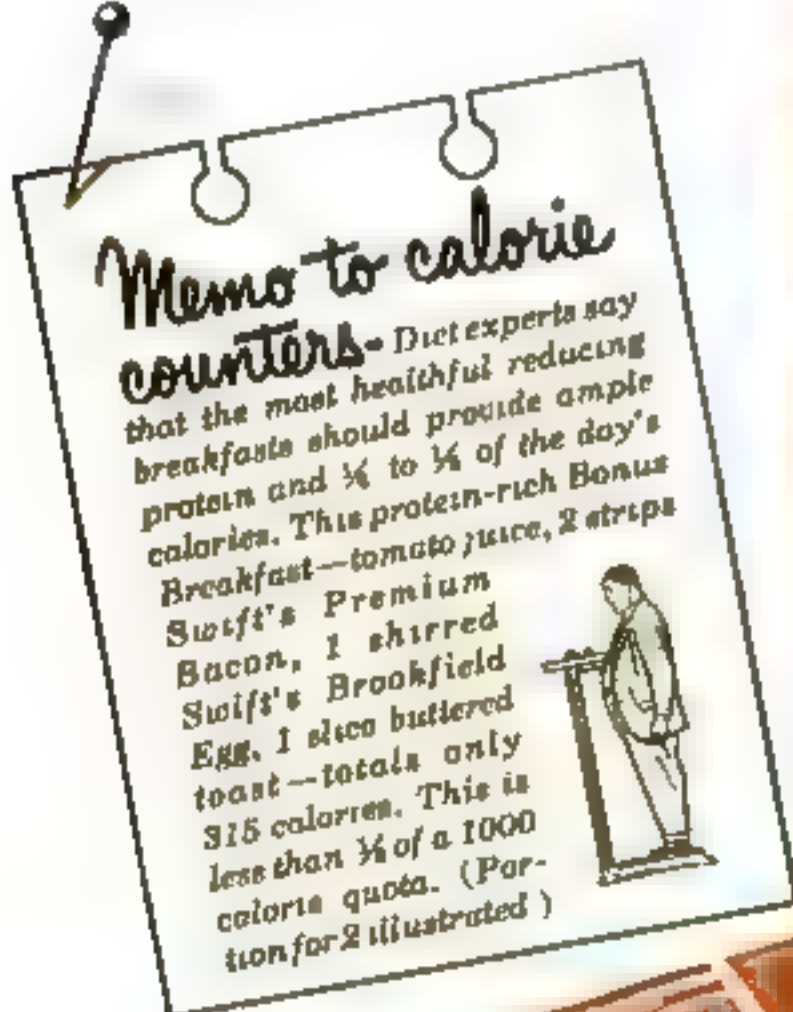 Memo to calorie
counters- Diet experts say
that the most healthful reducing
breakfasts should provide ample
protein and to of the day's
calories. This protein-rich Bonus
Breakfast—tomato juice, 2 strips
Swift's Premium
Bacon, 1 shirred
Swift's Brookfield
Egg, 1 slice buttered
toast—totals only
315 calories. This is
less than of a 1000
calorie quota. (Por-
tion for 2 illustrated)